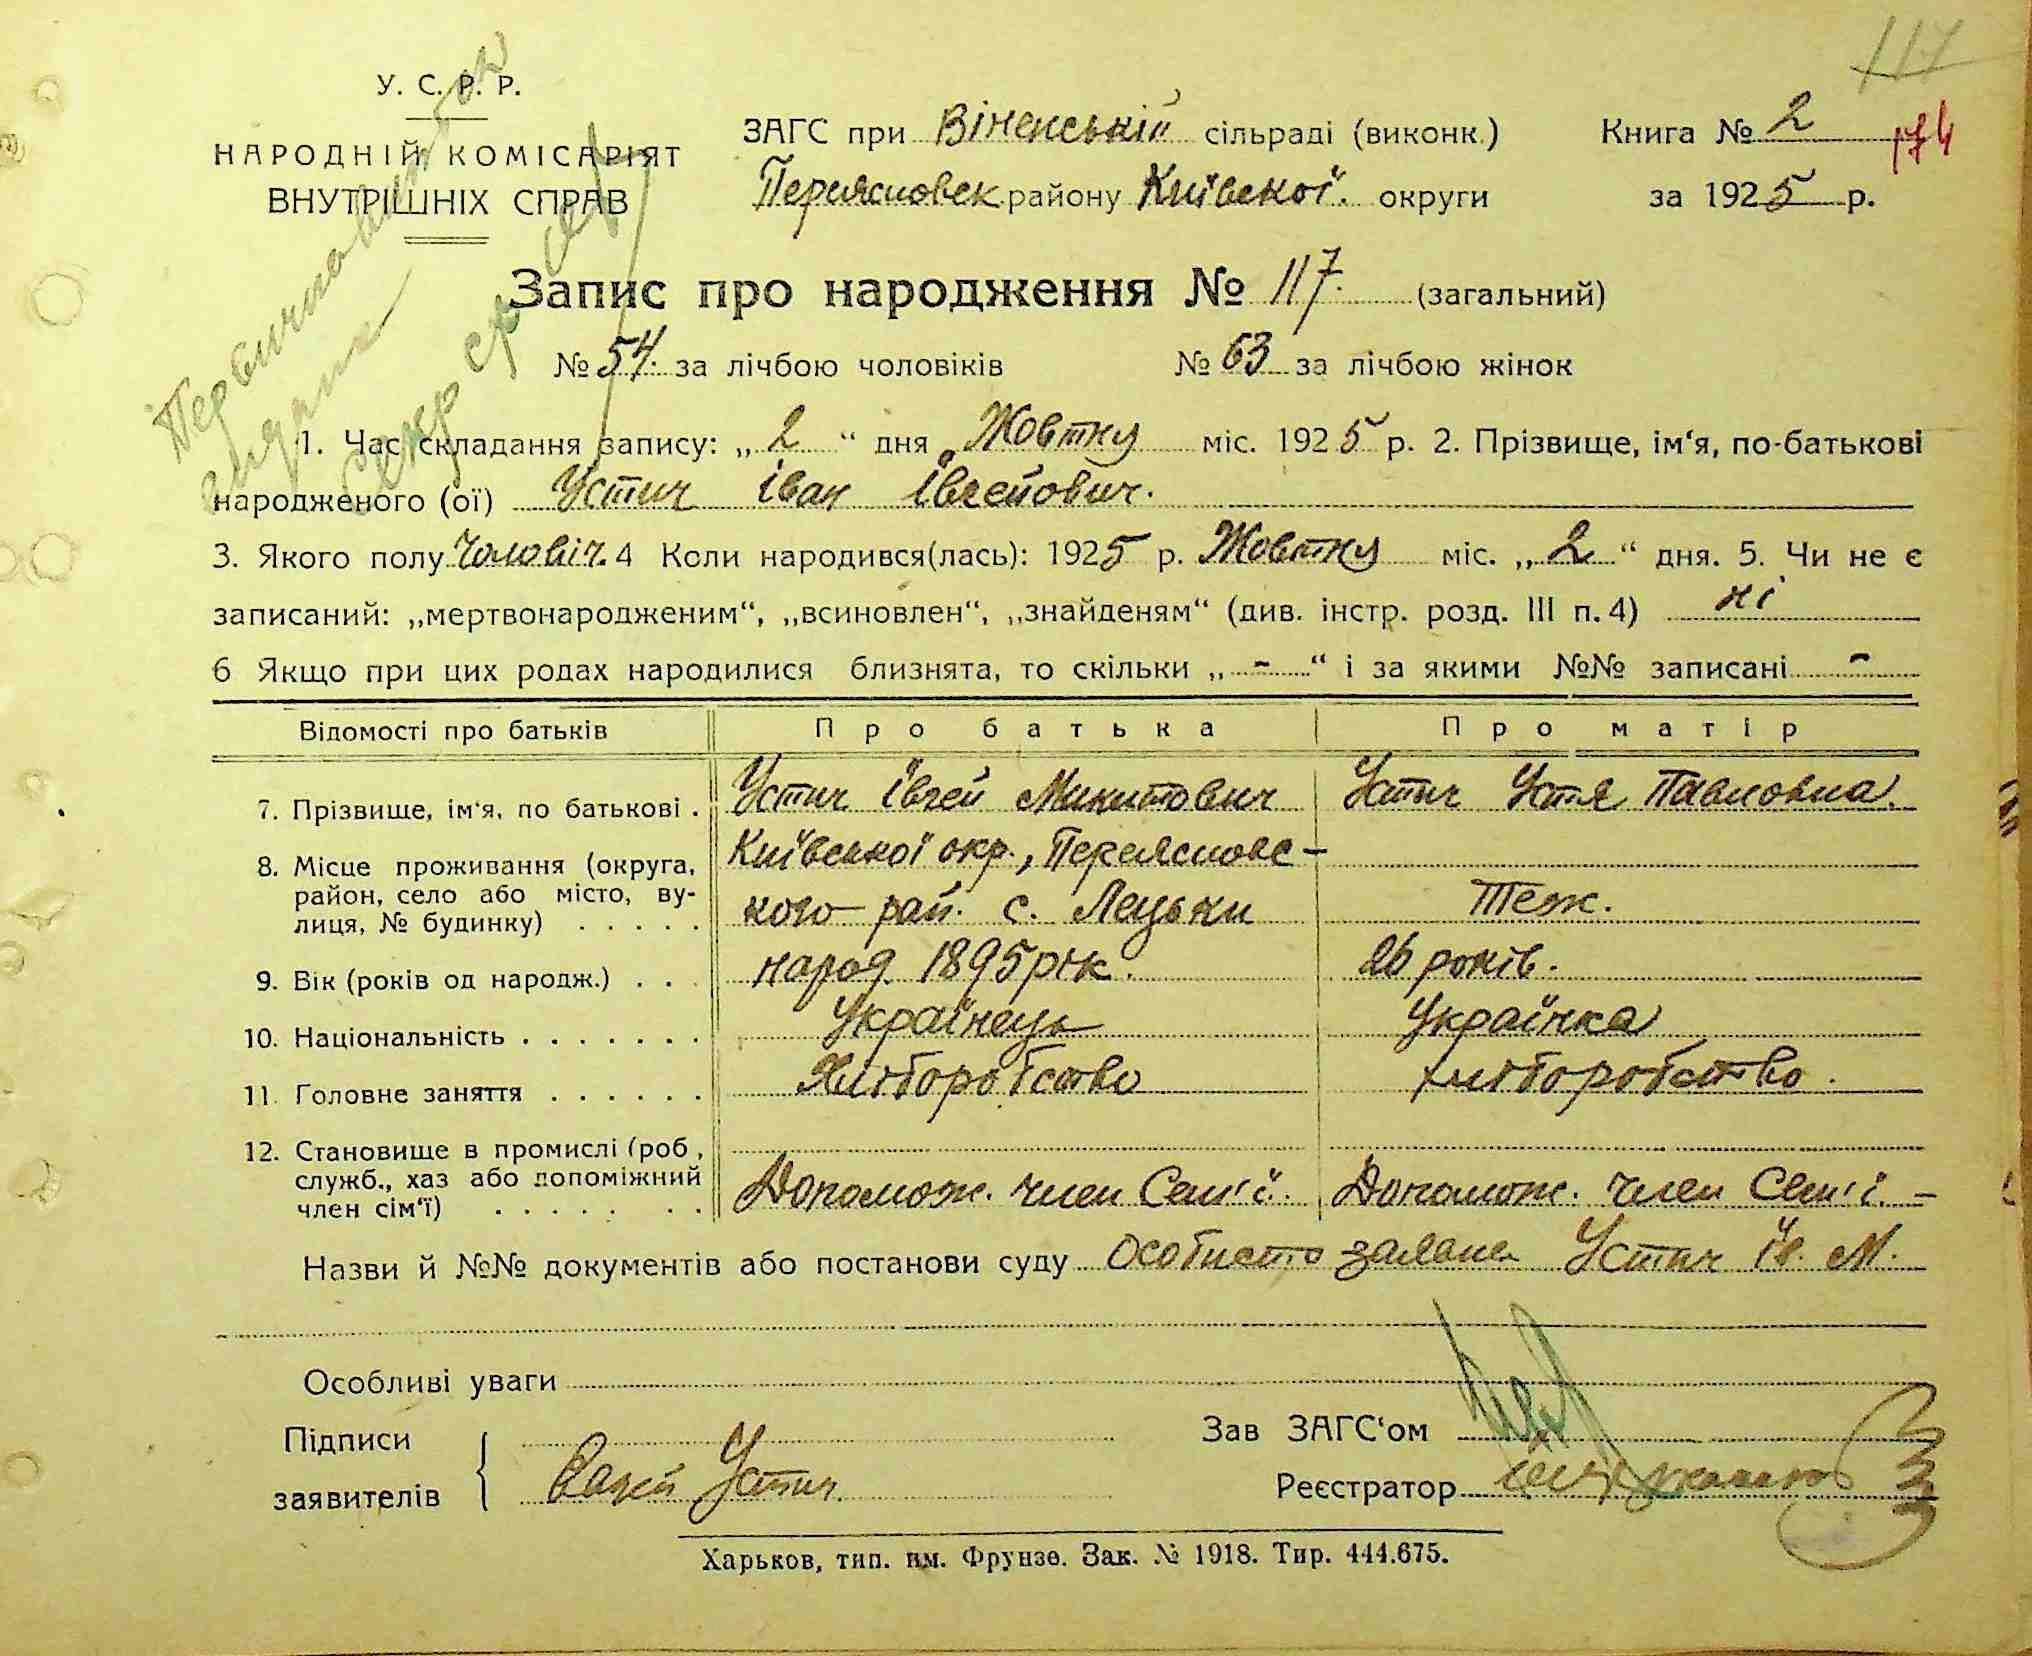 117
174
У. С. Р. Р.
НАРОДНІЙ КОМІСАРІЯТ
ВНУТРІШНІХ СПРАВ
ЗАГС при Віненській сільраді (виконк.)
Переясловск району Київської округи
Книга № 2
за 1925 р.
Запис про народження № 117. (загальний)
№ 54. за лічбою чоловіків № 63 за лічбою жінок
1. Час складання запису: „ 2 “ дня Жовтня міс. 1925 р. 2. Прізвище, ім‘я, по-батькові
народженого (ої) Устич Іван Івгейович.
3. Якого полу Чоловіч. 4 Коли народився(лась): 1925 р. Жовтня міс. „ 2 “ дня. 5. Чи не є
записаний: „мертвонародженим“, „всиновлен“, „знайденям“ (див. інстр. розд. III п. 4) ні
6 Якщо при цих родах народилися близнята, то скільки „ - “ і за якими №№ записані -
Відомості про батьків Про батька Про матір
7. Прізвище, ім‘я, по батькові . Устич Івгей Микитович Устич Устя Павловна.
8. Місце проживання (округа, район, село або місто, ву-лиця, № будинку) . . . . . Київської окр., Переясловс-кого рай. с. Лецьки Теж.
9. Вік (років од народж.) . . . народ. 1895 рік. 26 років.
10. Національність . . . . . . . Українець Українка
11. Головне заняття . . . . . . Хліборобство хліборобство.
12. Становище в промислі (роб, служб., хаз або допоміжний член сім‘ї) . . . . . . . Допомож. член Сем'ї. Допомож. член Сем'ї. -
Назви й №№ документів або постанови суду Особисто заявив Устич Ів. М.
Особливі уваги
Підписи
заявителів
Устич
Зав ЗАГС‘ом
Реєстратор
Харьков, тип. им. Фрунзе. Зак. № 1918. Тир. 444.675.